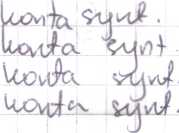 konta synt.
konta synt.
konta synt.
konta synt.